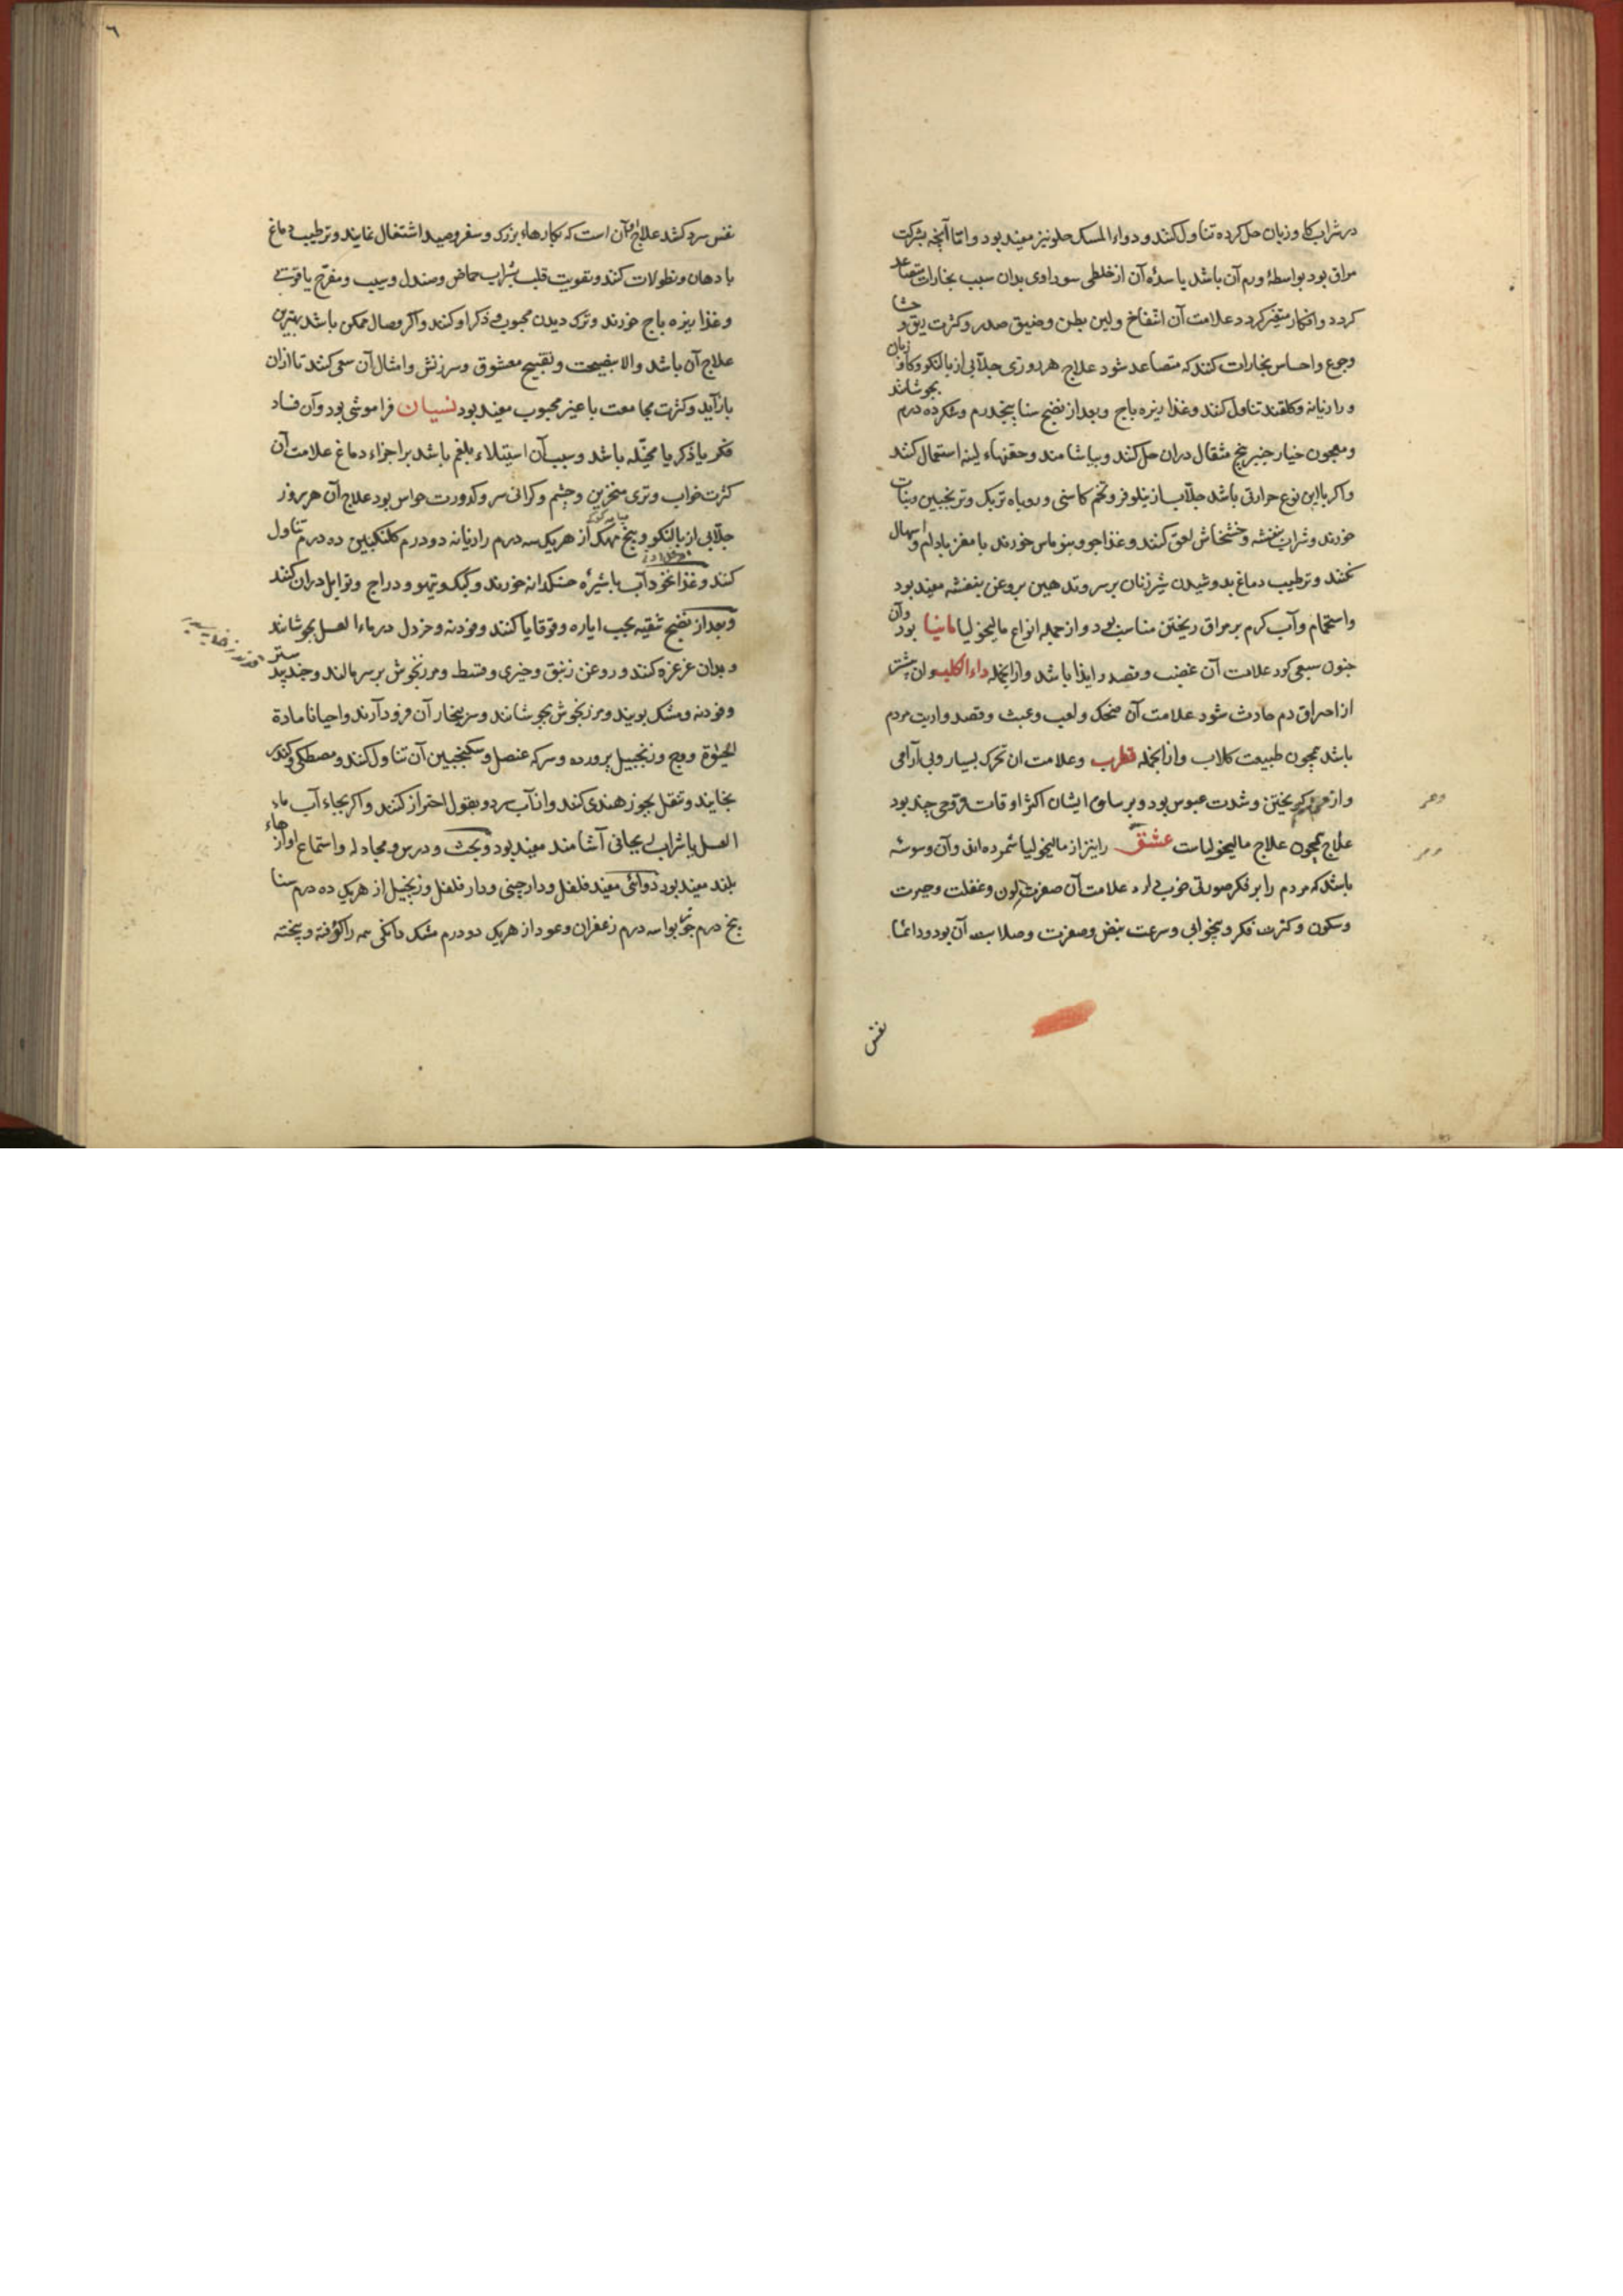 در شراب گاوزبان حل کرده تناول کنند و دواء المسک حلو نیز مفید بود و اما آنچه بشرکت
مراق بود بواسطۀ ورم آن باشد یا سدۀ آن از خلطی سوداوی بدان سبب بخارات متصاعد
کردد و افکار متغیر کردد علامت آن انتفاخ و لین بطن و ضیق صدر و کثرت بزق و جشا
وجع و احساس بخارات کنند که متصاعد شود علاج هر روزی جلابی از بالنکو و کاوزبان
و رازیانه و کلقند تناول کنند و غذا زیره باج و بعد از نضج سنا پنجدرم و شکر ده درم بجوشانند
و معجون خیار چنبر پنج مثقال دران حل کنند و بیاشامند و حقنهاء لینه استعمال کنند
و اکر با این نوع حرارتی باشد جلاب از نیلوفر و تخم کاسنی و روباه تربک و ترنجبین و نبات
خورند و شراب بنفشه و خشخاش لعق کنند و غذا جو و بنو ماس خورند با مغز بادام و اسهال
نکنند و ترطیب دماغ بدوشیدن شیر زنان بر سر و تدهین بروغن بنفشه مفید بود
و استحمام و آب کرم بر مراق ریختن مناسب بود و از جمله انواع مالیخولیا مانیا بود و آن
جنون سبعی کود علامت آن غضب و قصد و ایذا باشد و ازانجمله داء الکلب و ان بیشتر
از احراق دم حادث شود علامت آن ضحک و لعب و عبث و قصد و اذیت مردم
باشد همچون طبیعت کلاب و ازانجمله قطرب و علامت ان تحرک بسیار و بی آرامی
و از مردم کریختن و شدت عبوس بود و بر ساق ایشان اکثر اوقات قروحی چند بود
علاج همچون علاج مالیخولیاست عشق را نیز از مالیخولیا شمرده اند و آن وسوسۀ
باشد که مردم را بر فکر صورتی خوب دارد علامت آن صفرت لون و غفلت و حیرت
و سکون و کثرت فکر و بیخوابی و سرعت نبض و صفرت و صلابت آن بود و دائما
نفس
نفس سرد کشد علاج آن است که بکارهاء بزرک و سفر و صید اشتغال نمایند و ترطیب دماغ
بادهان و نطولات کنند و تقویت قلب بشراب حماض و صندل و سیب و مفرح یاقوتی
و غذا زیره باج خورند و ترک دیدن محبوب و ذکر او کنند و اکر وصال ممکن باشد بهترین
علاج آن باشد و الا بنصیحت و تقبیح معشوق و سرزنش و امثال آن سعی کنند تا ازان
بازآید و کثرت مجامعت با غیر محبوب مفید بود نسیان فراموشی بود و آن فساد
فکر یا ذکر یا مخیله باشد و سبب آن استیلاء بلغم باشد بر اجزاء دماغ علامت آن
کثرت خواب و تری منخرین و چشم و کرانی سر و کدورت حواس بود علاج آن هر روز
جلابی از بالنکو و بیخ مهک از هر یک سه درم رازیانه دو درم کلنکبین ده درم تناول
کنند و غذا نخودآب با شیرۀ خسکدانه خورند و کبک و تیهو و دراج و توابل دران کنند
و بعد از نضج تنقیه بحب ایاره و قوقایا کنند و فودنه و خردل در ماء العسل بجوشانند
و بدان غرغره کنند و روغن زنبق و خیری و قسط و مرزنجوش بر سر مالند و جندبیدستر
و فودنه و مشک بویند و مرزنجوش بجوشانند و سر ببخار آن فرود آرند و احیانا مادة
الحیوة و وج و زنجبیل پرورده و سرکه عنصل و سکنجبین آن تناول کنند و مصطکی و کندر
بخایند و تنقل بجوز هندی کنند و از آب سرد و بقول احتراز کنند و اکر بجاء آب ماء
العسل یا شراب ریحانی آشامند مفید بود و بحث و درس و مجادله و استماع آوازهاء
بلند مفید بود دوائی مفید فلفل و دارچینی و دار فلفل و زنجبیل از هر یک ده درم سنا
پنج درم جوزبوا سه درم زعفران و عود از هر یک دو درم مشک دانکی همه را کوفته و بیخته